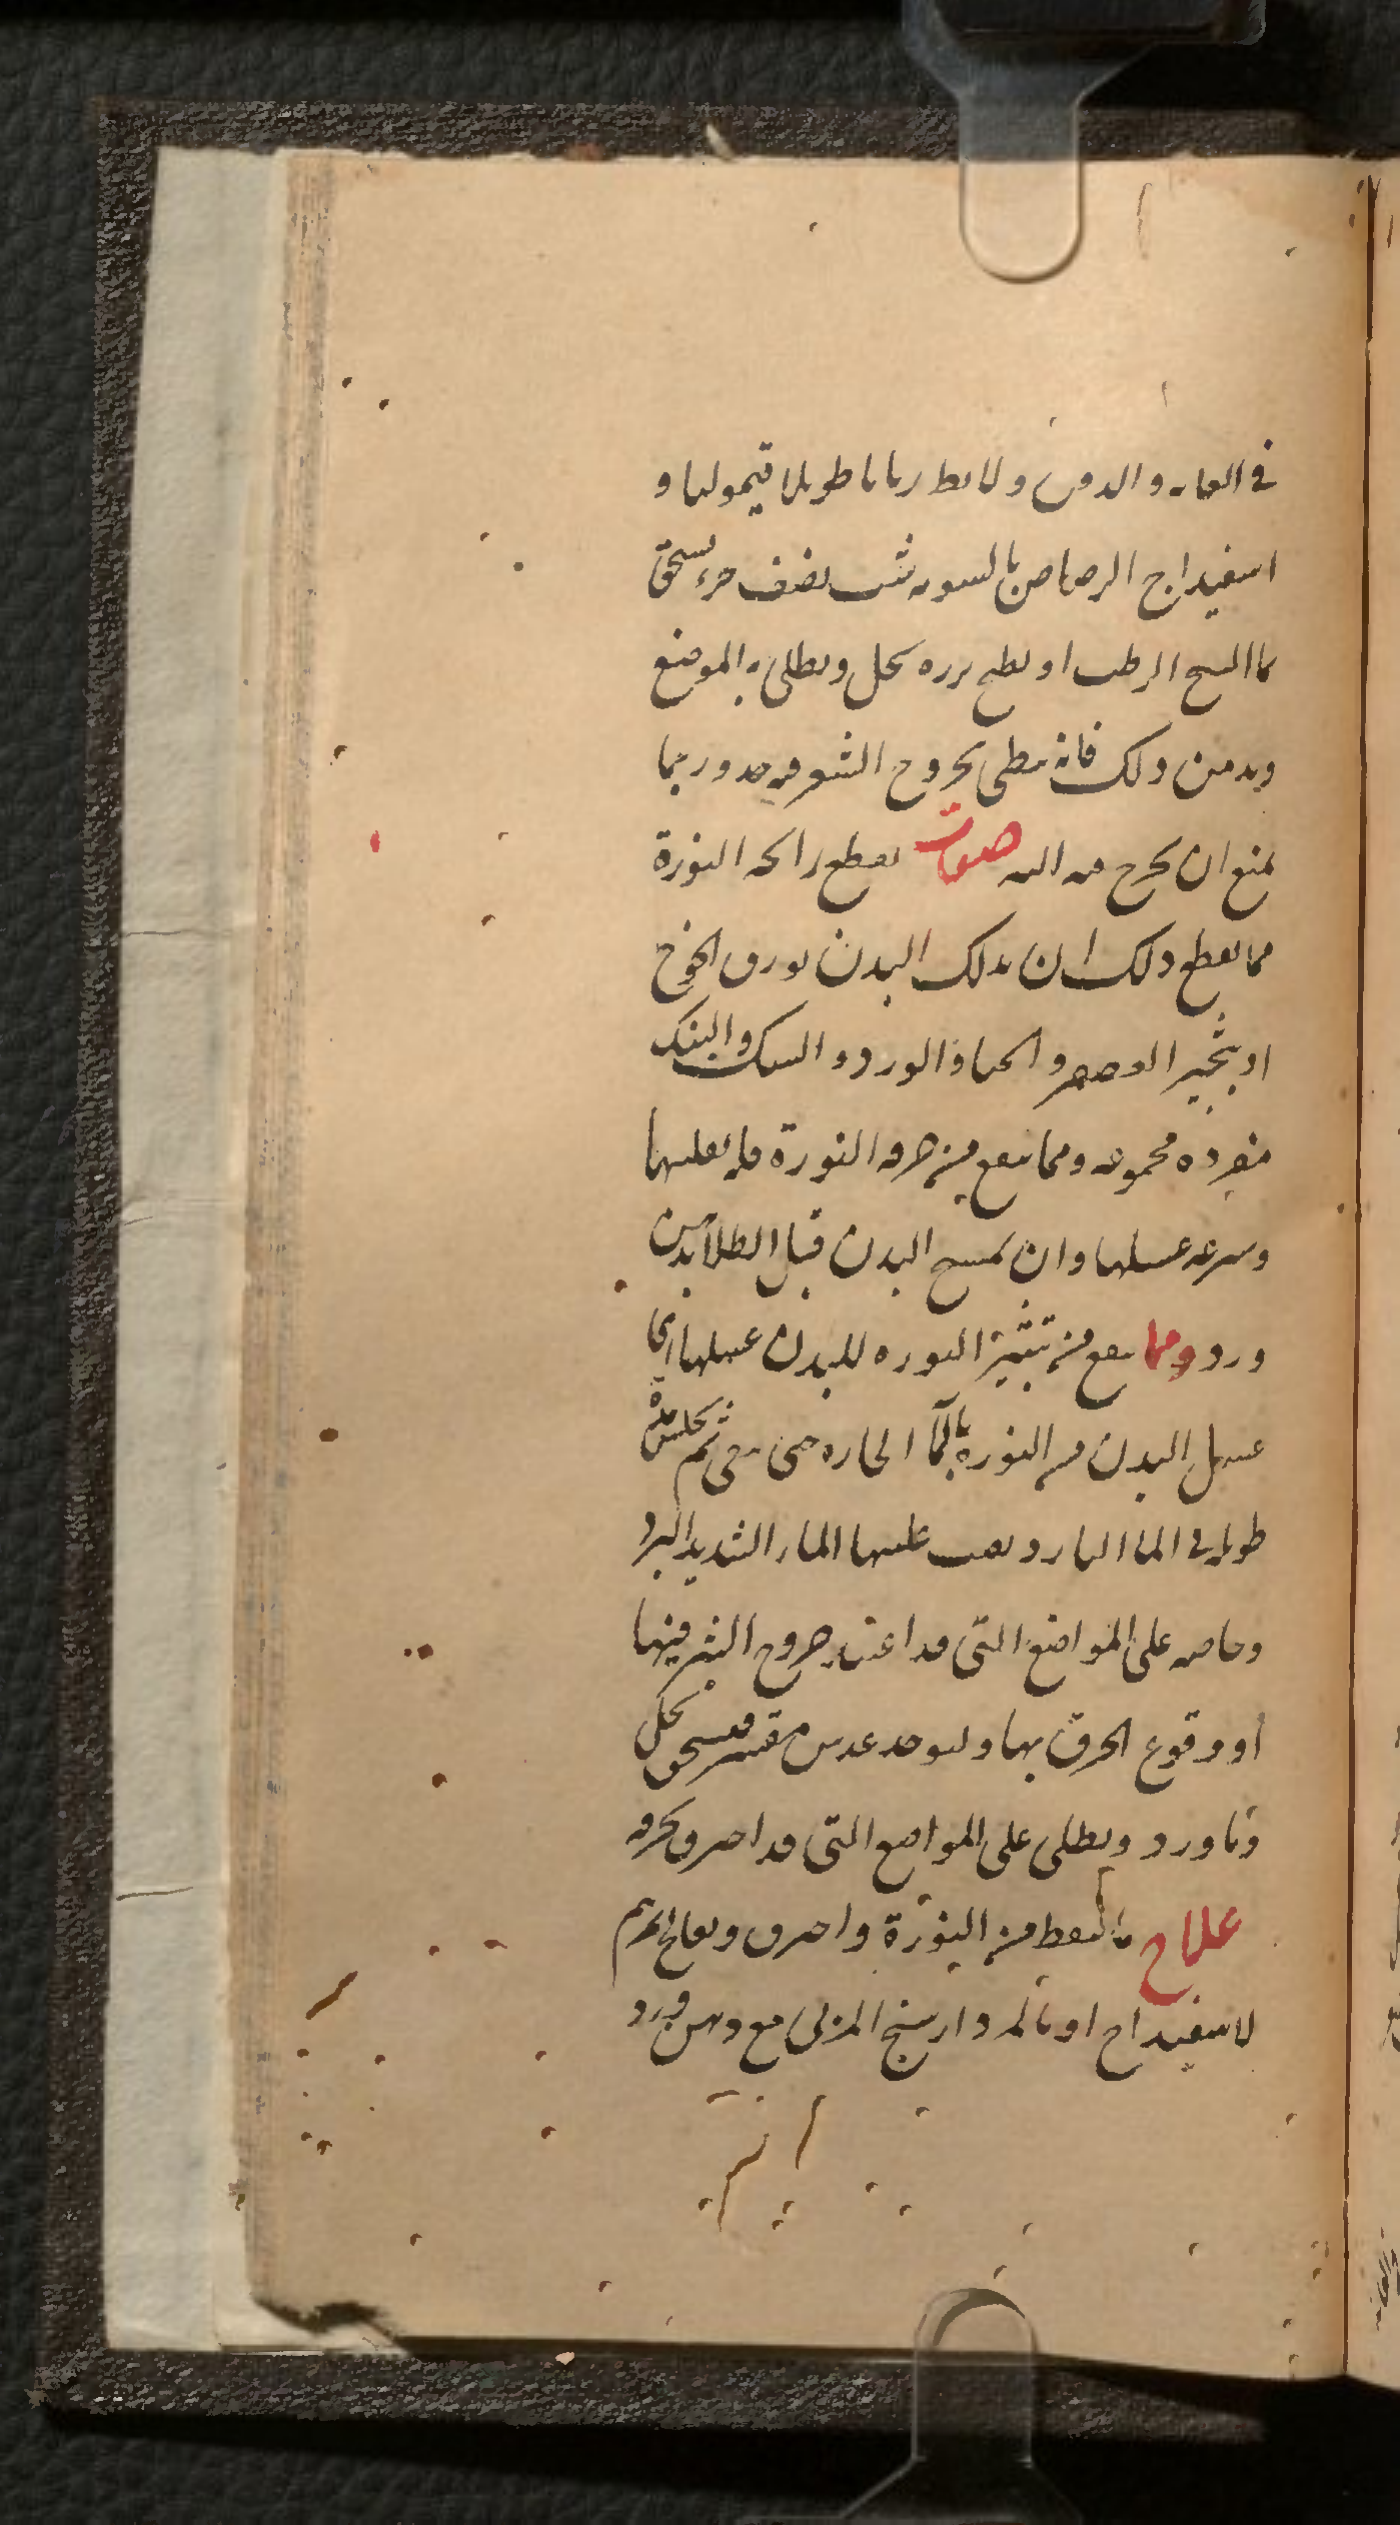 في العانه والذقن ولا يبط زمانا طويلا قيموليا و
اسفيداج الرصاص بالسويه شب نصف جزء يسحق
بماء البنج الرطب او يطبخ بزره بخل ويطلى به الموضع
ويدمن ذلك فانه يبطى بخروج الشعر فيه جدا وربما
يمنع ان يخرج منه البته صفات يقطع رائحة النورة
مما يقطع ذلك ان يدلك البدن بورق الخوخ
او بثجير العصفر والحنا والورد والسك والبنك
مفردة مجموعه ومما ينفع من حرق النورة قله تقليبها
وسرعه غسلها وان يمسح البدن قبل الطلا بدهن
ورد ومما ينفع من تبثير النوره للبدن غسلها اي
غسل البدن من النورة بالما الحاره حتى ثم يجلس منه
طويله في الماء البارد يصب عليها الماء الشديد البرد
وخاصه على المواضع التي قد اعتيد خروج البثر فيها
او وقوع الحرق بها وليوخد عدس مقشر فيسحق بخل
وماورد ويطلى على المواضع التي قد احترق بحرقه
علاج ما تنفط من النورة واحترق ويعالج بمرهم
لاسفيداج او بالمرداسنج المربى مع دهن ورد